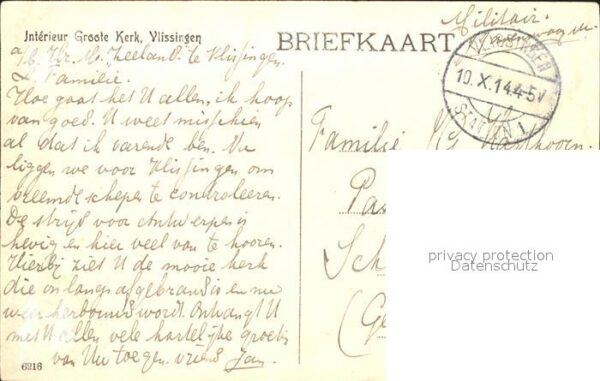 Intérieur Groote Kerk, Vlissingen
BRIEFKAART
Militair.
VLISSINGEN
10.X.14.4-5V
STATION 1
a/b. Hr. Ms. Zeeland. te Vlissingen.
L. Familie.
Hoe gaat het U allen, ik hoop
van goed. U weet misschien
al dat ik varende ben. Nu
liggen we voor Vlissingen om
vreemde schepen te controleeren.
De strijd voor Antwerpen is
hevig en hier veel van te hooren.
Hierbij ziet U de mooie kerk
die onlangs afgebrand is en nu
weer herbouwd wordt. Ontvangt U
met U allen vele hartelijke groeten
van Uw toegen. vriend Jan.
Familie
Pa
Sch
(Ge
privacy protection
Datenschutz
6216